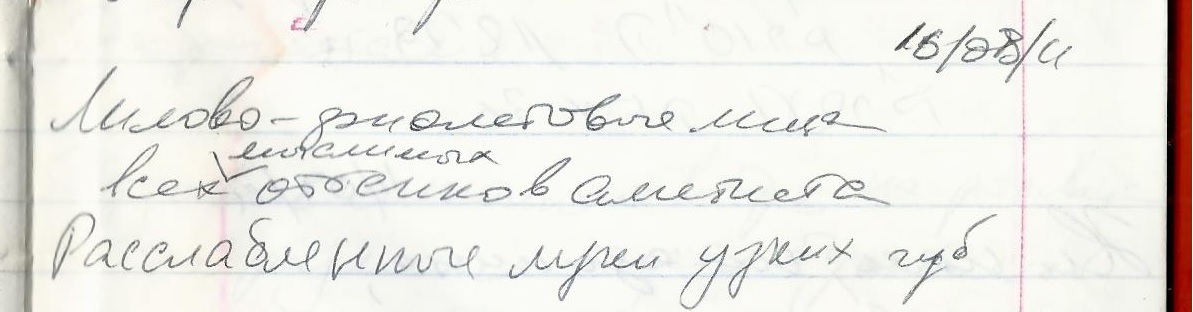 16/08/11
Лилово-фиолетовые лица
мыслимых
всех оттенков аметиста
Расслабленные луки узких губ